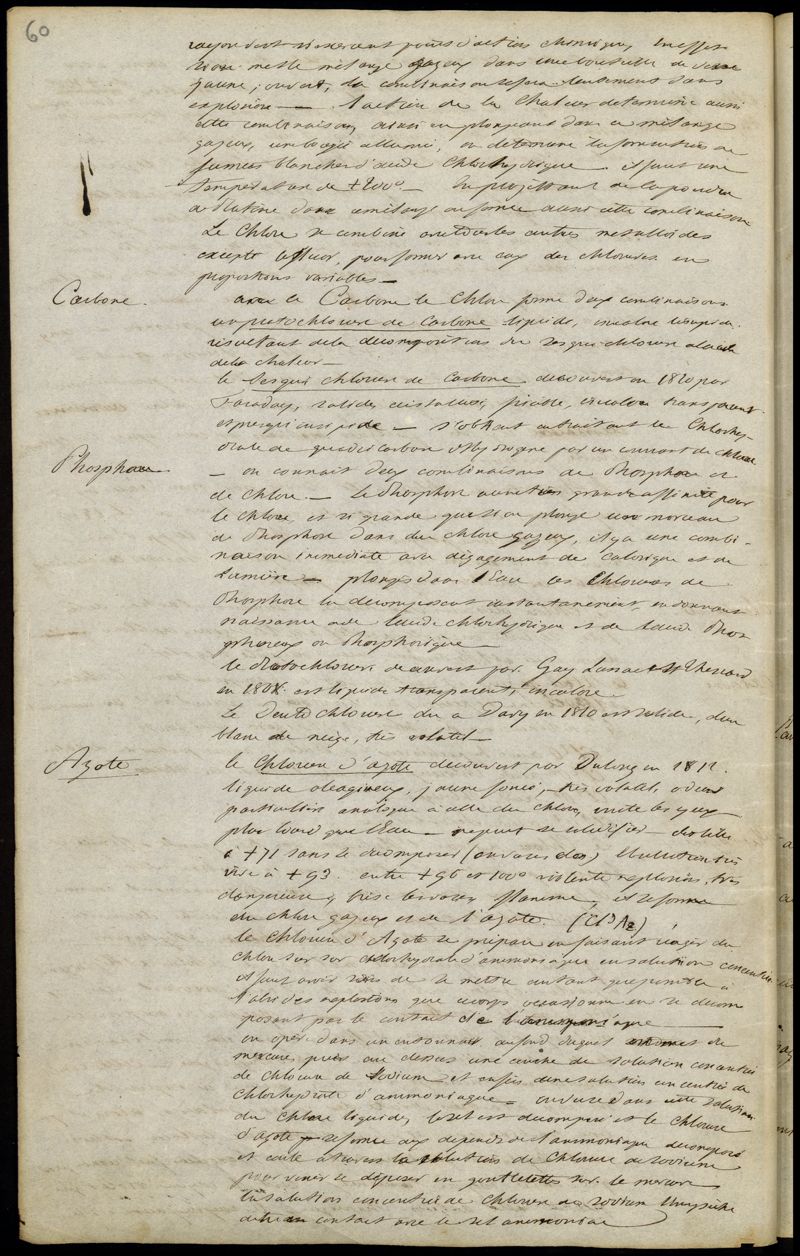 60
rayon vert n'exercent point d'action chimique, en effet
si on met le mélange gazeux dans une bouteille de verre
jaune, ouvert, la combinaison se fera lentement sans
explosion — l'action de la chaleur determine aussi
cette combinaison, ainsi en plongeant dans ce mélange
gazeux, une bougie allumée, on determine la formation de
fumées blanches d'acide chlorhydrique il faut une
temperature de +200° — En projettant de la poudre
de Platine dans ce mélange on forme aussi cette combinaison
Le Chlore se combine avec toutes les autres metalloides
excepté le fluor, pour former avec eux des chlorures en
proportions variables —
Carbone.
avec le Carbone le Chlore forme deux combinaisons
un protochlorure de Carbone liquide, incolore limpide.
résultant de la decomposition du sesqui-chlorure
de la chaleur —
le Sesqui chlorure de Carbone decouvert en 1820 par
Faraday, solide, cristallin, friable, incolore transparent
et presque insipide — s'obtient en traitant le Chlorhy-
drate de carbone d'Hydrogène par un courant de chlore
Phosphore
— on connait deux combinaisons de Phosphore et
de Chlore. — le Phosphore a une très grande affinité pour
le chlore, et si grande que si on plonge un morceau
de Phosphore dans du chlore gazeux, il y a une combi-
naison immediate avec dégagement de calorique et de
lumière — plongés dans l'Eau les Chlorures de
Phosphore la decomposent instantanement, en donnant
naissance a de l'acide chlorhydrique et de l'acide Phos
phoreux ou Phosphorique —
le Protochlorure decouvert par Gay Lussac et Mr Thenard
en 1808. est liquide transparent, incolore
Le Deuto chlorure du a Davy en 1810 est solide, d'un
blanc de neige, très volatil —
Azote
le Chlorure d'azote decouvert par Dulong en 1812.
liquide oleagineux, jaune foncé, très volatil, odeur
particulière analogue à celle du chlore, irrite les yeux
plus lourd que l'Eau — ne peut se solidifier — distille
à +71 sans se decomposer ébullition très
vive à +93. entre +96 et 100° violente explosion, très
dangereuse y brise les vases et se forme
du chlore gazeux et de l'azote. (Cl³Az)
le Chlorure d'Azote se prépare en faisant réagir du
chlore sur chlorhydrate d'ammoniaque en solution concentrée
il faut avoir soin de se mettre autant que possible à
l'abri des explosions que ce corps occasionne en se decom
posant par le contact de l'ammoniaque —
on opère dans un entonnoir, au fond duquel on met du
mercure, puis au dessus une couche de solution concentrée
de chlorure de Sodium et enfin une solution concentrée de
chlorhydrate d'ammoniaque — on verse dans cette solution
du Chlore liquide, le sel est decomposé et le chlorure
d'azote se forme aux depends de l'ammoniaque decomposé
et coule à travers la solution de Chlorure de sodium
pour venir se déposer en goutelettes sur le mercure
la solution concentrée de chlorure de sodium l'empêche
d'etre en contact avec le sel ammoniac